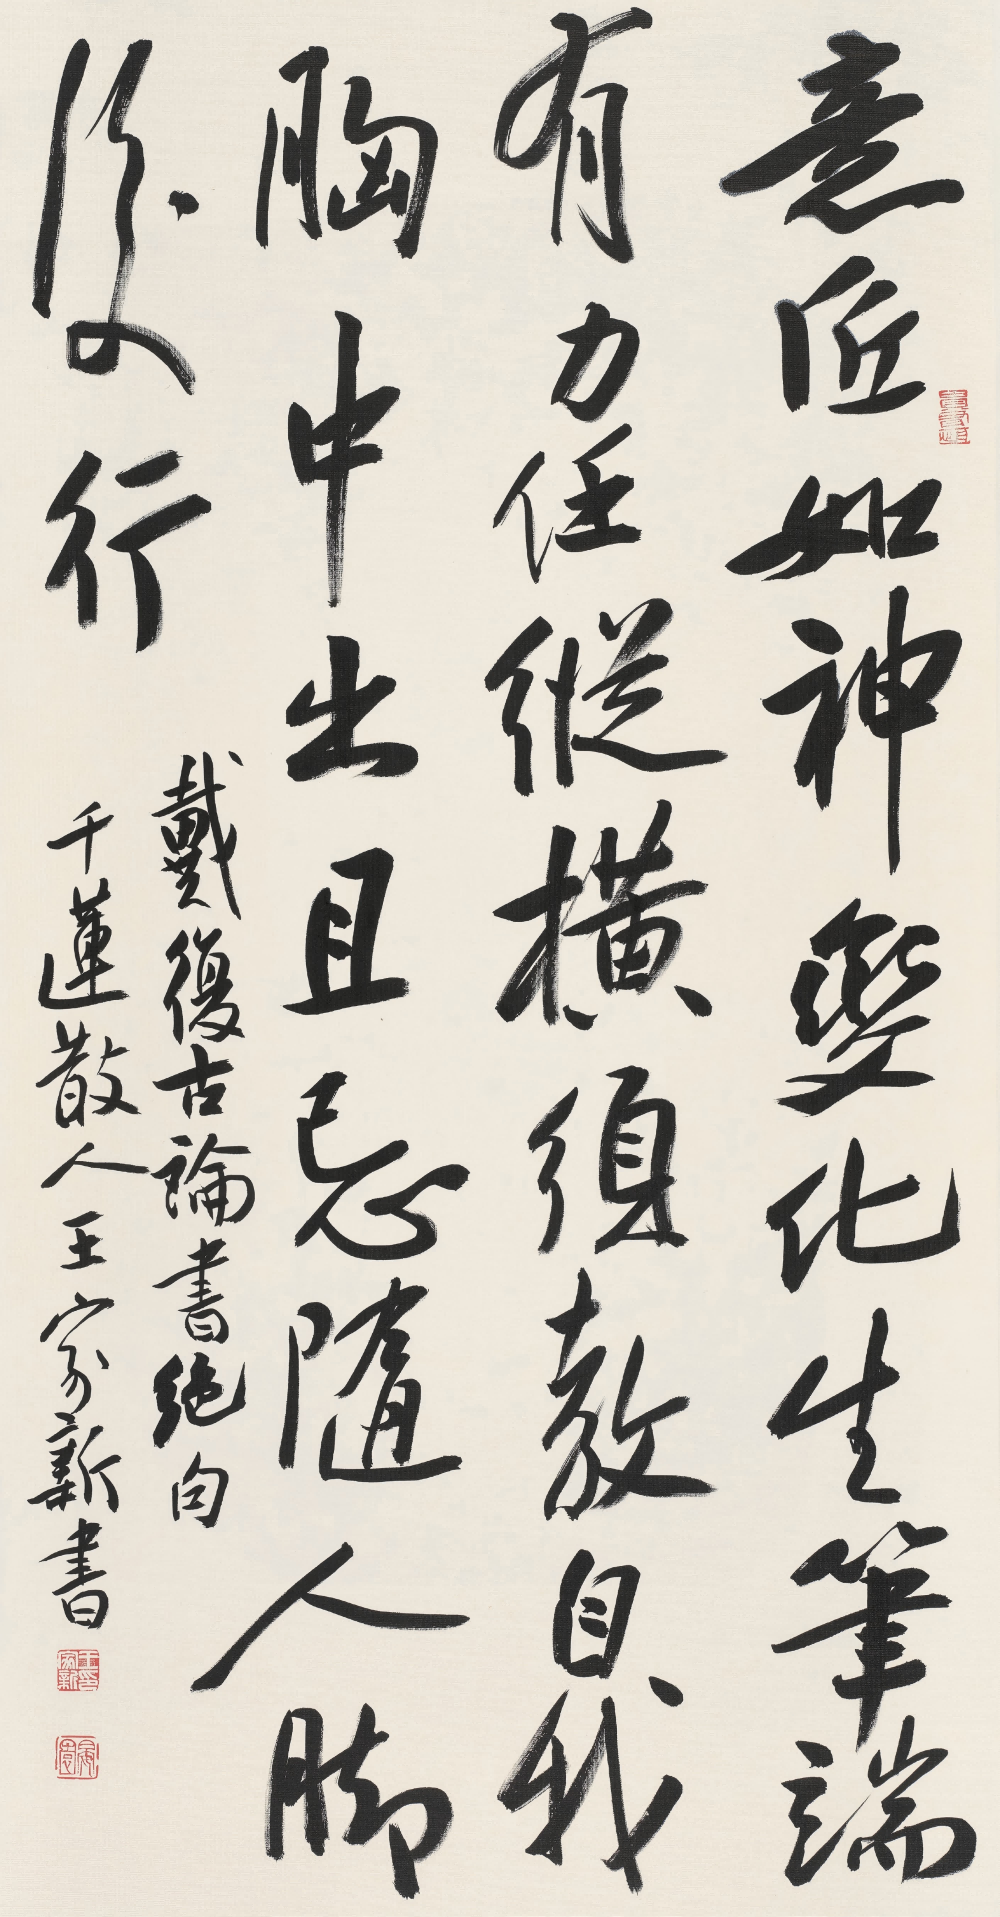 意匠如神變化生筆端
有力任縱橫須教自我
胸中出且忌隨人脚
後行
戴復古論書絕句
千蓮散人王家新書
王家新印